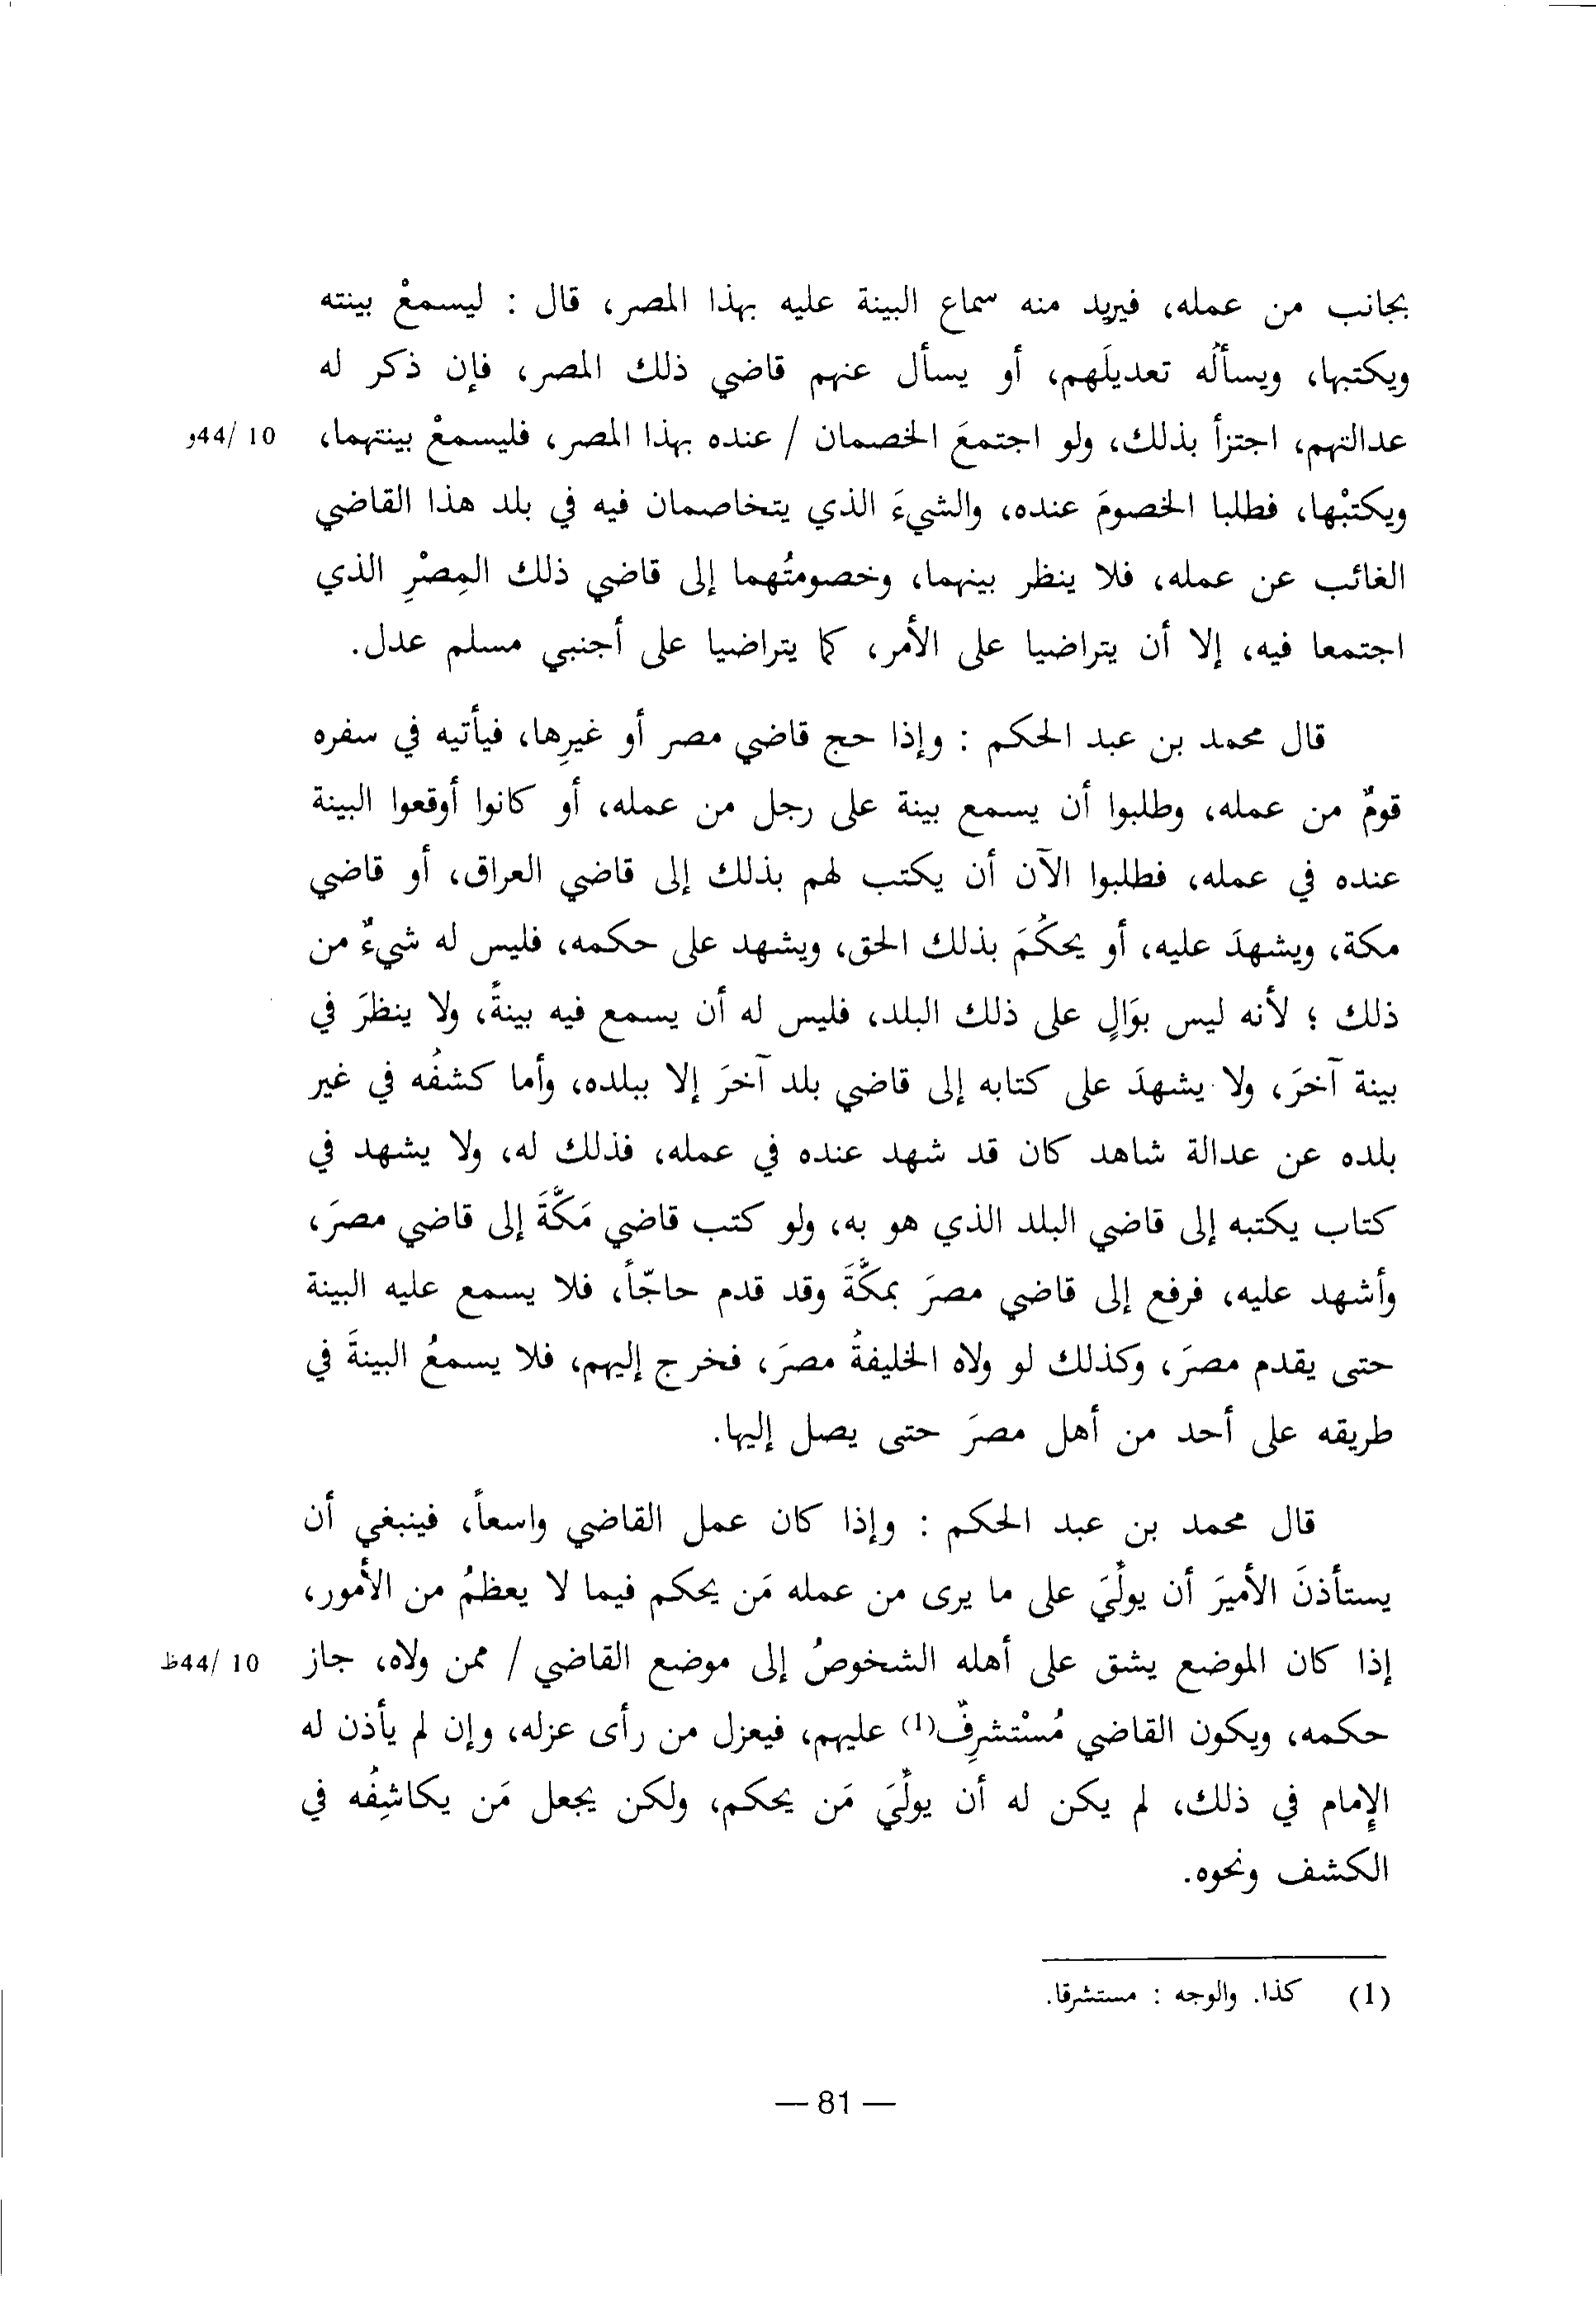 بجانب من عمله، فيريد منه سماع البينة عليه بهذا المصر، قال : ليسمعْ بينته
ويكتبها، ويسألُه تعديلَهم، أو يسأل عنهم قاضي ذلك المصر، فإن ذكر له
عدالتهم، اجتزأ بذلك، ولو اجتمعَ الخصمان / عنده بهذا المصر، فليسمعْ بينتهما، 10 /44و
ويكتبْها، فطلبا الخصومَ عنده، والشيءَ الذي يتخاصمان فيه في بلد هذا القاضي
الغائب عن عمله، فلا ينظر بينهما، وخصومتُهما إلى قاضي ذلك المِصْرِ الذي
اجتمعا فيه، إلا أن يتراضيا على الأمر، كما يتراضيا على أجنبي مسلم عدل.
قال محمد بن عبد الحكم : وإذا حج قاضي مصر أو غيرِها، فيأتيه في سفره
قومٌ من عمله، وطلبوا أن يسمع بينة على رجل من عمله، أو كانوا أوقعوا البينة
عنده في عمله، فطلبوا الآن أن يكتب لهم بذلك إلى قاضي العراق، أو قاضي
مكة، ويشهدَ عليه، أو يحكُمَ بذلك الحق، ويشهد على حكمه، فليس له شيءٌ من
ذلك ؛ لأنه ليس بوَالٍ على ذلك البلد، فليس له أن يسمع فيه بينةً، ولا ينظرَ في
بينة آخرَ، ولا يشهدَ على كتابه إلى قاضي بلد آخرَ إلا ببلده، وأما كشفُه في غير
بلده عن عدالة شاهد كان قد شهد عنده في عمله، فذلك له، ولا يشهد في
كتاب يكتبه إلى قاضي البلد الذي هو به، ولو كتب قاضي مَكَّةَ إلى قاضي مصرَ،
وأشهد عليه، فرفع إلى قاضي مصرَ بمكَّةَ وقد قدم حاجّاً، فلا يسمع عليه البينة
حتى يقدم مصرَ، وكذلك لو ولاه الخليفةُ مصرَ، فخرج إليهم، فلا يسمعُ البينةَ في
طريقه على أحد من أهل مصرَ حتى يصل إليها.
قال محمد بن عبد الحكم : وإذا كان عمل القاضي واسعاً، فينبغي أن
يستأذنَ الأميرَ أن يولِّيَ على ما يرى من عمله مَن يحكم فيما لا يعظمُ من الأمور،
إذا كان الموضع يشق على أهله الشخوصُ إلى موضع القاضي / ممن ولاه، جاز 10 /44ظ
حكمه، ويكون القاضي مُسْتشرِفٌ(1) عليهم، فيعزل من رأى عزله، وإن لم يأذن له
الإمام في ذلك، لم يكن له أن يولِّيَ مَن يحكم، ولكن يجعل مَن يكاشِفُه في
الكشف ونحوه.
(1) كذا. والوجه : مستشرقا.
— 81 —